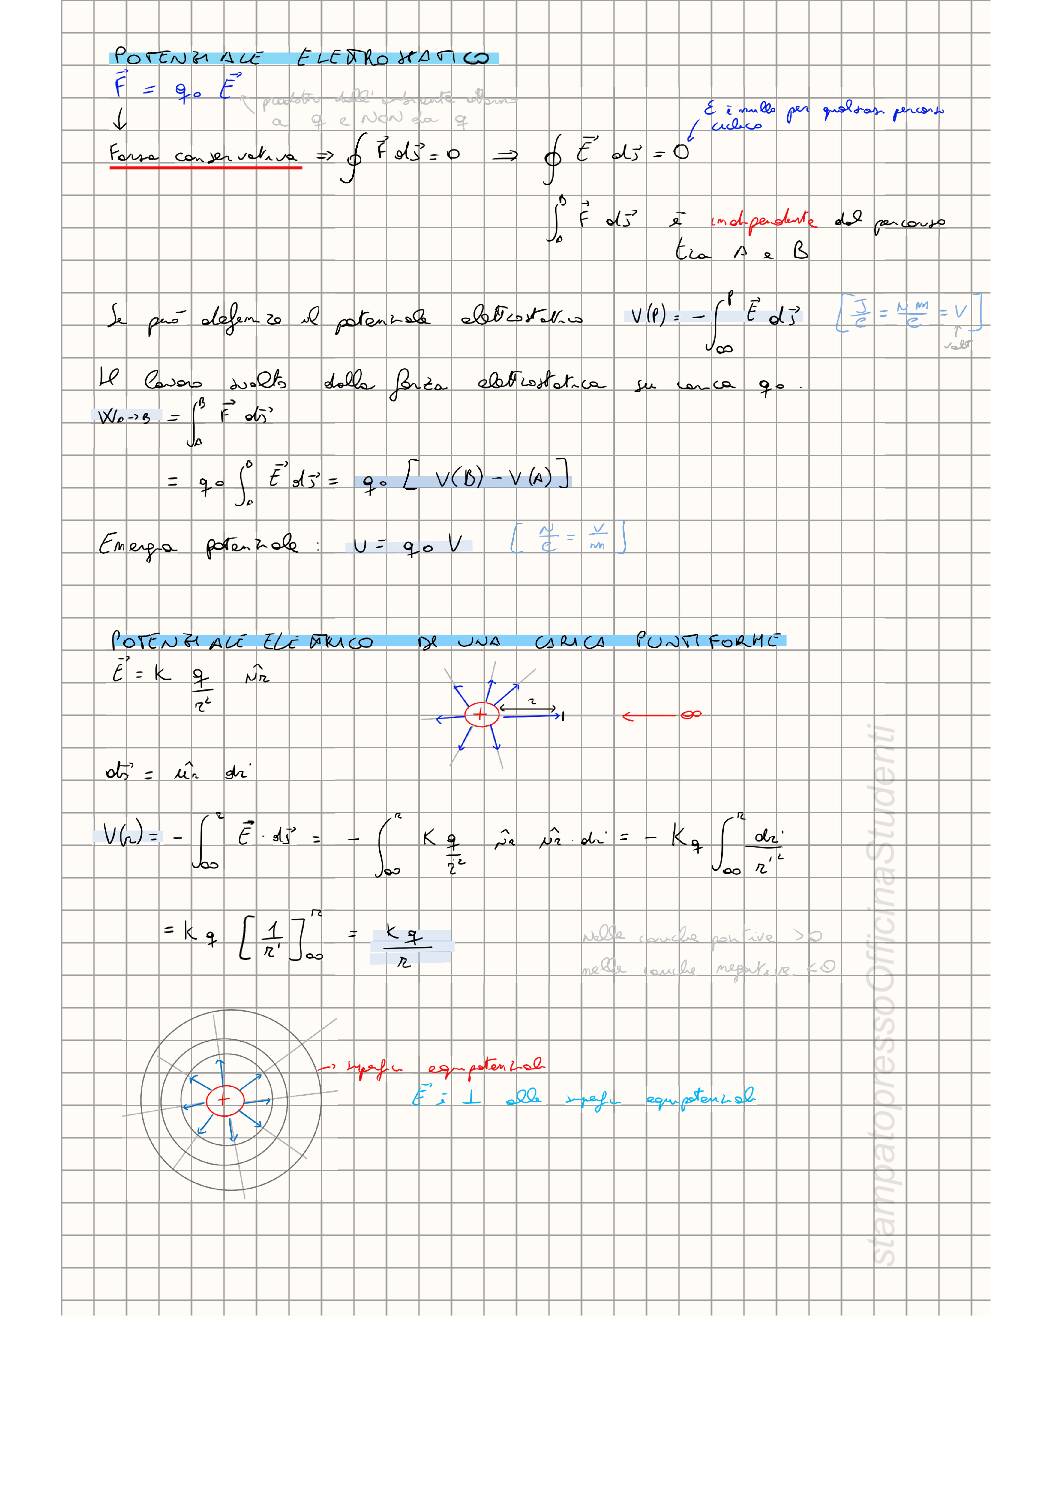 POTENZIALE ELETTROSTATICO
F⃗ = q₀ E⃗
prodotto dall'ambiente esterno
a q e NON da q
E è nullo per qualsiasi percorso
ciclico
↓
Forza conservativa ⇒ ∮ F⃗ ds⃗ = 0 ⇒ ∮ E⃗ ds⃗ = 0
∫_A^B F⃗ ds⃗ è indipendente dal percorso
tra A e B
Se può definire il potenziale elettrostatico V(P) = - ∫_∞^P E⃗ ds⃗ [J/C = N m/C = V]
volt
Il lavoro svolto dalla forza elettrostatica su carica q₀.
W_A→B = ∫_A^B F⃗ ds⃗
= q₀ ∫ E⃗ ds⃗ = q₀ [V(B) - V(A)]
Energia potenziale: U = q₀ V [N/C = V/m]
POTENZIALE ELETTRICO DI UNA CARICA PUNTIFORME
E⃗ = K q/r² ûr
+ r ∞
ds⃗ = ûr dr'
V(r) = - ∫_∞^r E⃗ · ds⃗ = - ∫_∞^r K q/r² ûr ûr · dr' = - Kq ∫_∞^r dr'/r'²
= Kq [1/r']_∞^r = Kq/r
Nelle cariche positive > 0
nelle cariche negative < 0
+ → superfici equipotenziali
E⃗ è ⊥ alle superfici equipotenziali
stampatopressoOfficinaStudenti